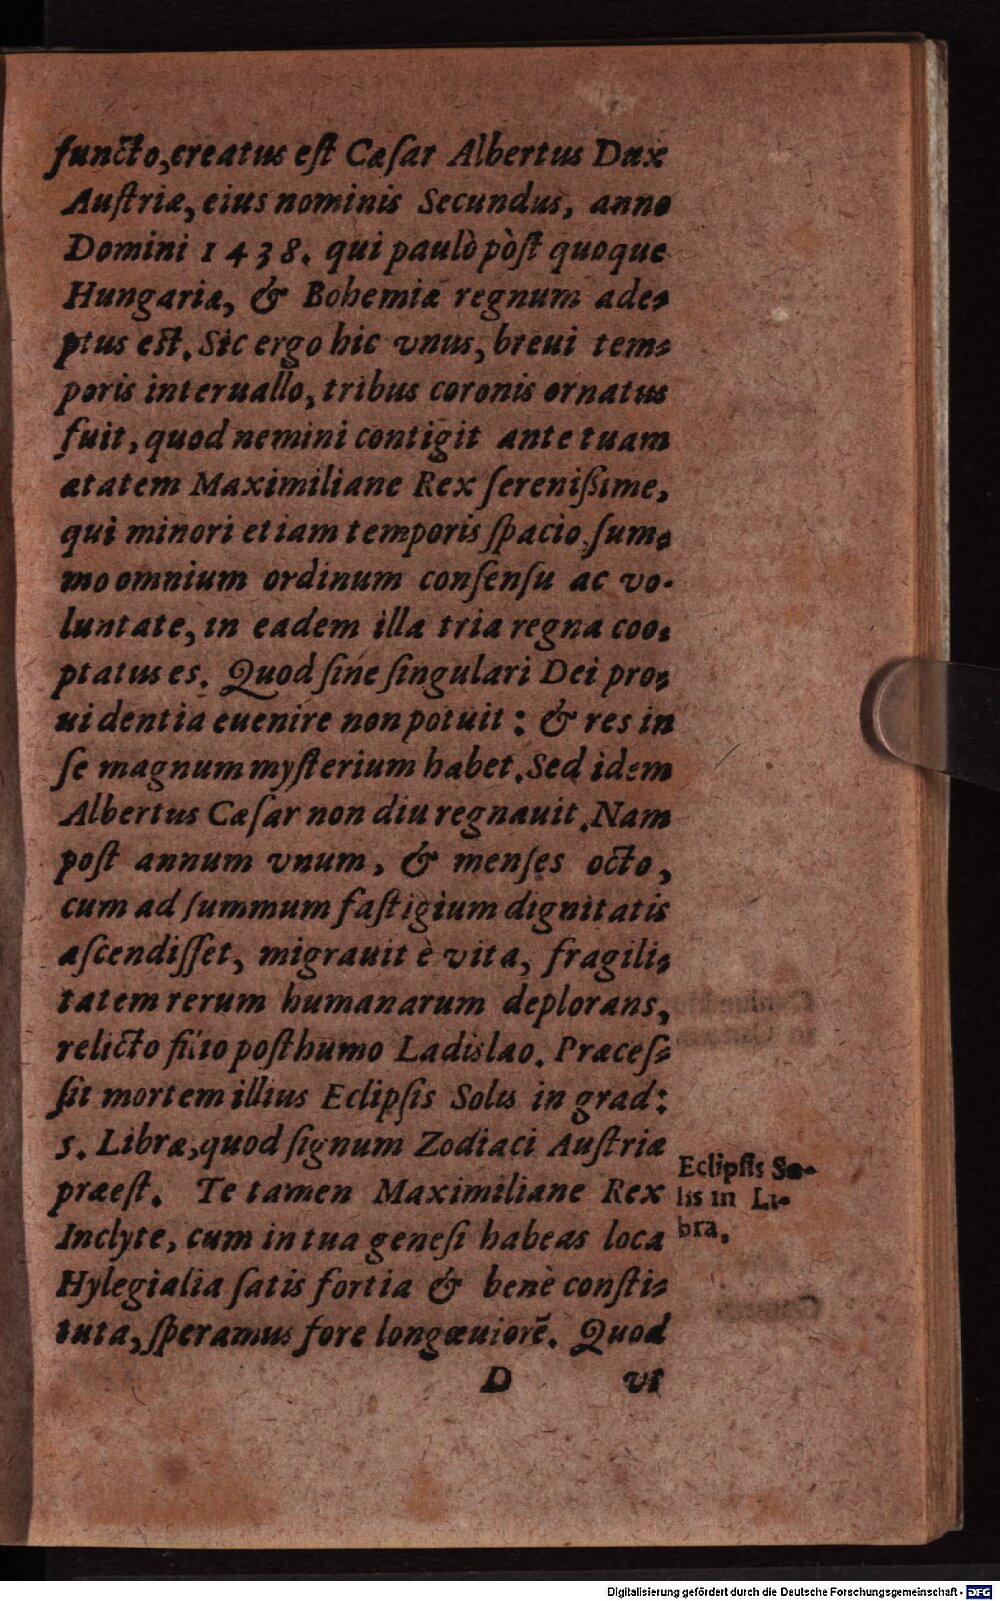 functo, creatus eſt Cæſar Albertus Dux
Auſtriæ, eius nominis Secundus, anno
Domini 1438. qui paulò pòſt quoque
Hungariæ, & Bohemiæ regnum ade-
ptus eſt. Sic ergo hic vnus, breui tem-
poris interuallo, tribus coronis ornatus
fuit, quod nemini contigit ante tuam
ætatem Maximiliane Rex ſereniſsime,
qui minori etiam temporis ſpacio, ſum-
mo omnium ordinum conſenſu ac vo-
luntate, in eadem illa tria regna coo-
ptatus es. Quod ſine ſingulari Dei pro-
uidentia euenire non potuit: & res in
ſe magnum myſterium habet. Sed idem
Albertus Cæſar non diu regnauit. Nam
poſt annum vnum, & menſes octo,
cum ad ſummum faſtigium dignitatis
aſcendiſſet, migrauit è vita, fragili-
tatem rerum humanarum deplorans,
relicto filio poſthumo Ladislao. Præceſ-
ſit mortem illius Eclipſis Solis in grad:
5. Libræ, quod ſignum Zodiaci Auſtriæ
præeſt. Te tamen Maximiliane Rex
Inclyte, cum in tua geneſi habeas loca
Hylegialia ſatis fortia & benè conſti-
tuta, ſperamus fore longæuiorē. Quod
Eclipſis So-
lis in Li-
bra.
D vt
Digitalisierung gefördert durch die Deutsche Forschungsgemeinschaft - DFG